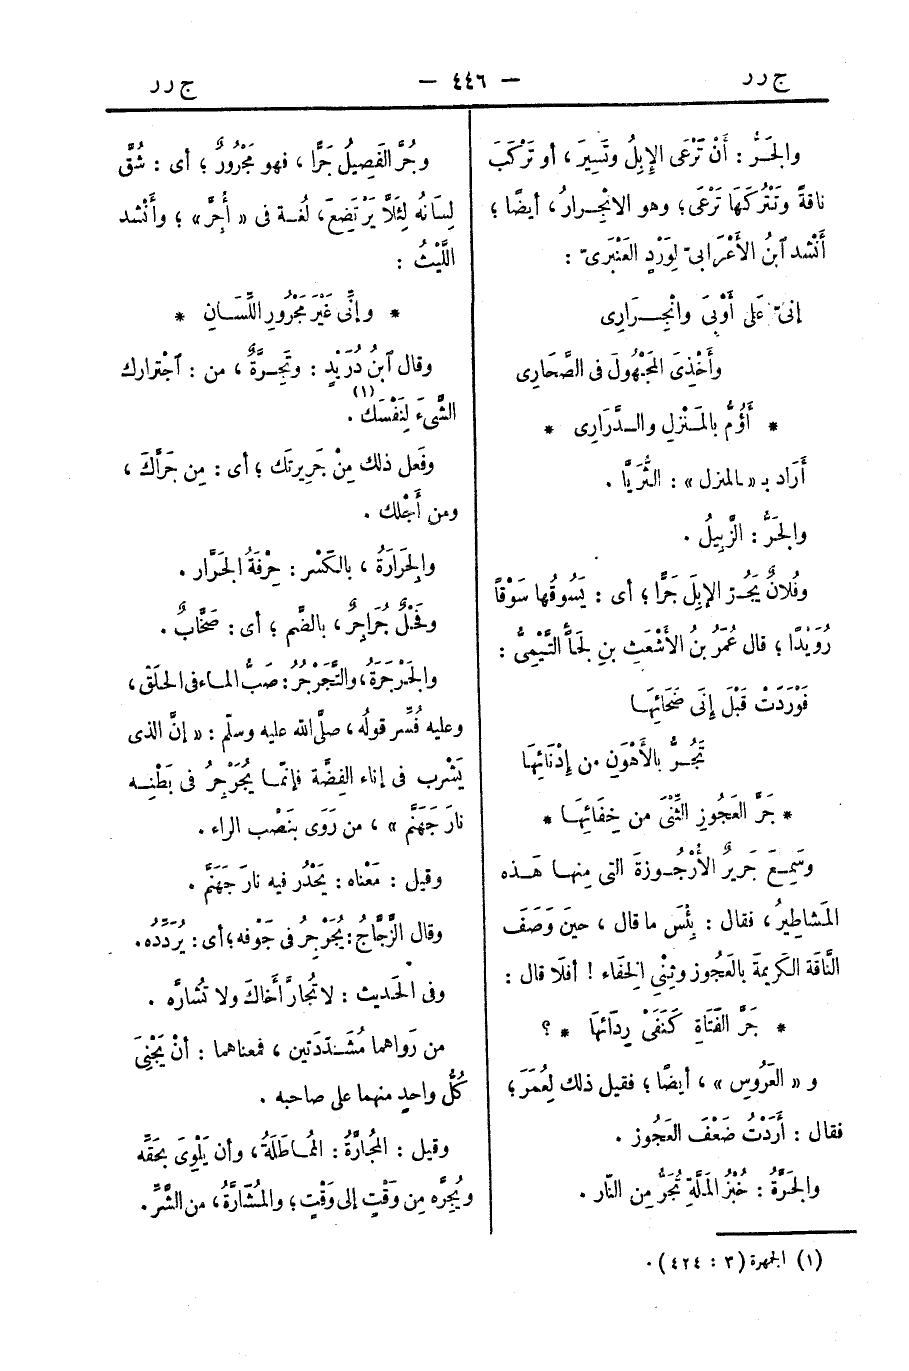 ج رر
— ٤٤٦ —
ج رر
والجَرُّ : أَنْ تَرْعَى الإِبِلُ وتَسِيرَ ، أو تَرْكَبَ
ناقةً وتَتْرُكَهَا تَرْعَى ؛ وهو الانْجِـرارُ ، أيضًا ؛
أَنْشد ابنُ الأَعْرَابىّ لِوَرْدٍ العَنْبَرىّ :
إنىّ عَلَى أَوْبِىَ وانْجِـــرَارِى
وأَخْذِىَ المَجْهُولَ فى الصَّحَارِى
* أَؤُمُّ بالمَـنْزِلِ والـدَّرَارِى *
أَرَاد بـ «المنزل» : الثُّرَيَّا .
والجَرُّ : الزَّبِيلُ .
وفُلانٌ يَجُـر الإبِلَ جَرًّا ؛ أى : يَسُوقُها سَوْقًا
رُوَيْدًا ؛ قال عُمَرُ بنُ الأَشْعَثِ بنِ لَجَأٍ التَّيْمِىُّ :
فَوْرَدَتْ قَبْلَ إنَى ضَحَائِهَا
تَجُـرُّ بالأَهْوَنِ من إِدْنَائِهَا
* جَرَّ العَجُوزِ الثِّنْىَ من خِفَائِهَا *
وسَمِـعَ جَرِيرٌ الأُرْجُـوزةَ التى مِنهـا هَـذه
المَشاطِيرُ ، فقال : بِئْسَ ما قال ، حينَ وَصَفَ
النَّاقَةَ الكَرِيمةَ بالعَجُوز وثِنْىِ الخِفَاء ! أفلَا قال :
* جَرَّ الفَتَاةِ كَنَفَىْ رِدَائِهَا * ؟
و « العَرُوس » ، أيضًا ؛ فقيل ذلك لِعُمَرَ ؛
فقال : أَرَدْتُ ضَعْفَ العَجُوز .
والجَرَّةُ : خُبْزُ المَلَّةِ تُجَرُّ مِن النّار .
وجُرَّ الفَصِيلُ جَرًّا ، فهو مَجْرُورٌ ؛ أى : شُقَّ
لِسَانُه لِئَلَّا يَرْتَضِعَ ، لُغـة فى « أُجِرَّ » ؛ وأَنْشد
اللَّيْثُ :
* وإنِّى غَيْرَ مَجْرُورِ اللِّسَـانِ *
وقال ابنُ دُرَيْدٍ : وتَجِـرَّةٌ ، من : اجْترارك
الشَّىءَ لِنَفْسَك (١) .
وفَعل ذلك مِنْ جَرِيرتَك ؛ أى : مِن جَرَّاكَ ،
ومن أَجْلك .
والجِرَارَةُ ، بالكَسْر : حِرْفَةُ الجَرَّار .
وفَحْلٌ جُرَاجِرٌ ، بالضَّم ؛ أى : صَخَّابٌ .
والجَـرْجَرَةُ ، والتَّجَرْجُرُ : صَبُّ المـاء فى الحلَقْ ،
وعليه فُسِّر قولُه ، صلَّى الله عليه وسلّم : « إنَّ الذى
يَشْرب فى إناء الفِضَّة فإنَّمـا يُجَرْجِرُ فى بَطْنِـه
نارَ جَهَنَّم » ، من رَوَى بنَصْب الراء .
وقيل : مَعْناه : يَحْدُر فيه نارَ جَهَنَّم .
وقال الزَّجَّاجُ : يُجَرْجِرُ فى جَوْفه ؛ أى : يُرَدِّدُه .
وفى الحَديث : لا تُجَارَّ أَخَاكَ ولا تُشَارَّه .
من رَواهما مُشَـدَدَتين ، فمعناهما : أَنْ يَجْنِىَ
كُلُّ واحدٍ منهما على صاحبه .
وقيل : المُجَارَّةُ : المُمـاطَلَةُ ، وأن يَلْوِىَ بحَقَّه
ويُجِرَّه مِن وَقْتٍ إلى وَقْتٍ ؛ والمُشَارَّةُ ، من الشَّرِّ .
(١) الجمهرة (٣ : ٤٢٤) .